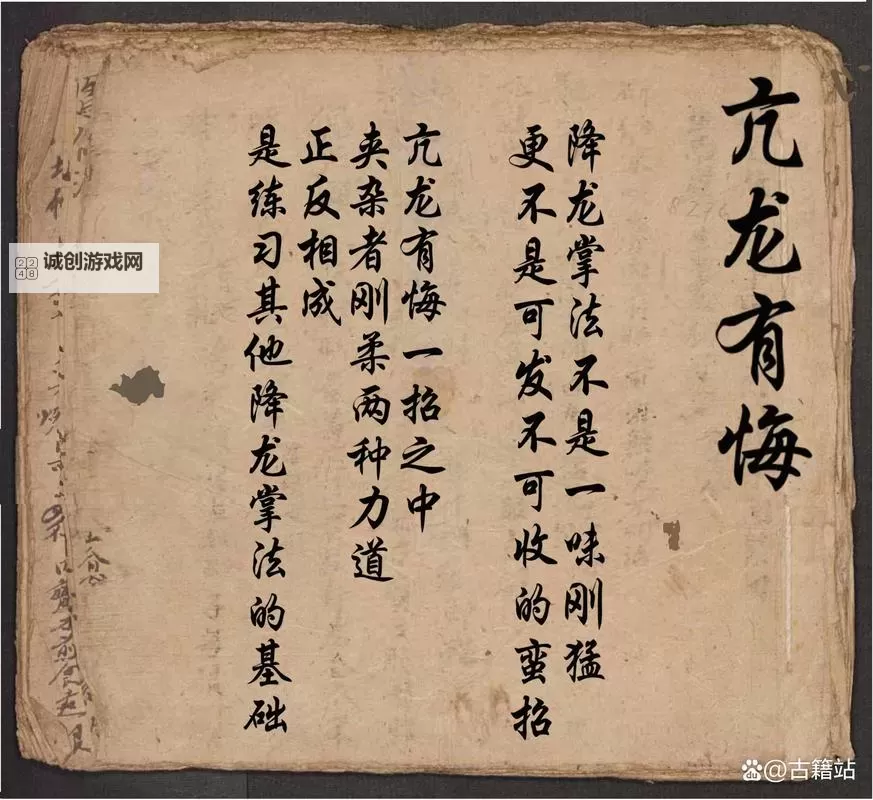 亢龙有悔
降龙掌法不是一味刚猛
更不是可发不可收的蛮招
亢龙有悔一招之中
夹杂者刚柔两种力道
正反相成
是练习其他降龙掌法的基础
2248
诚创游戏网
du@古籍站